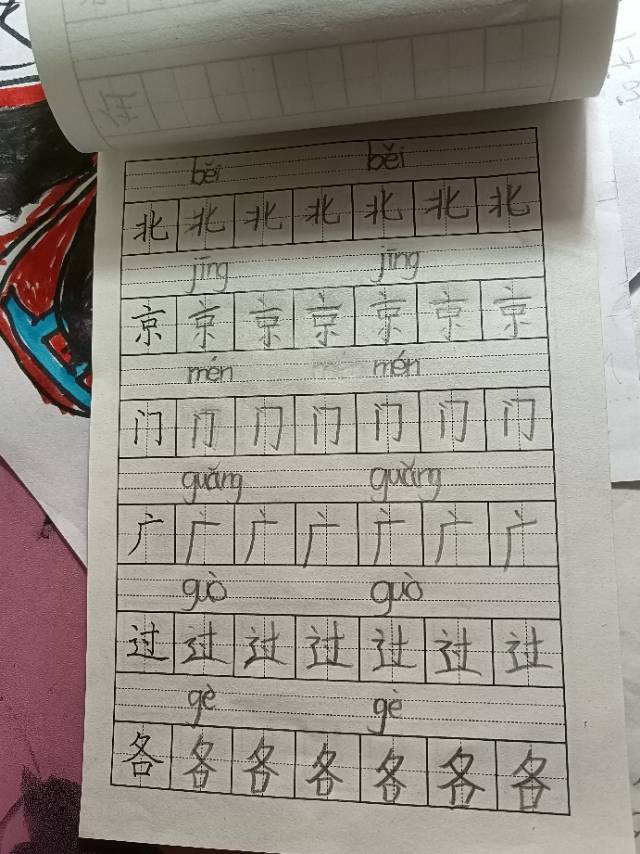 běi běi
北 北 北 北 北 北 北
jīng jīng
京 京 京 京 京 京 京
mén mén
门 门 门 门 门 门 门
guǎng guǎng
广 广 广 广 广 广 广
guò guò
过 过 过 过 过 过 过
gè gè
各 各 各 各 各 各 各